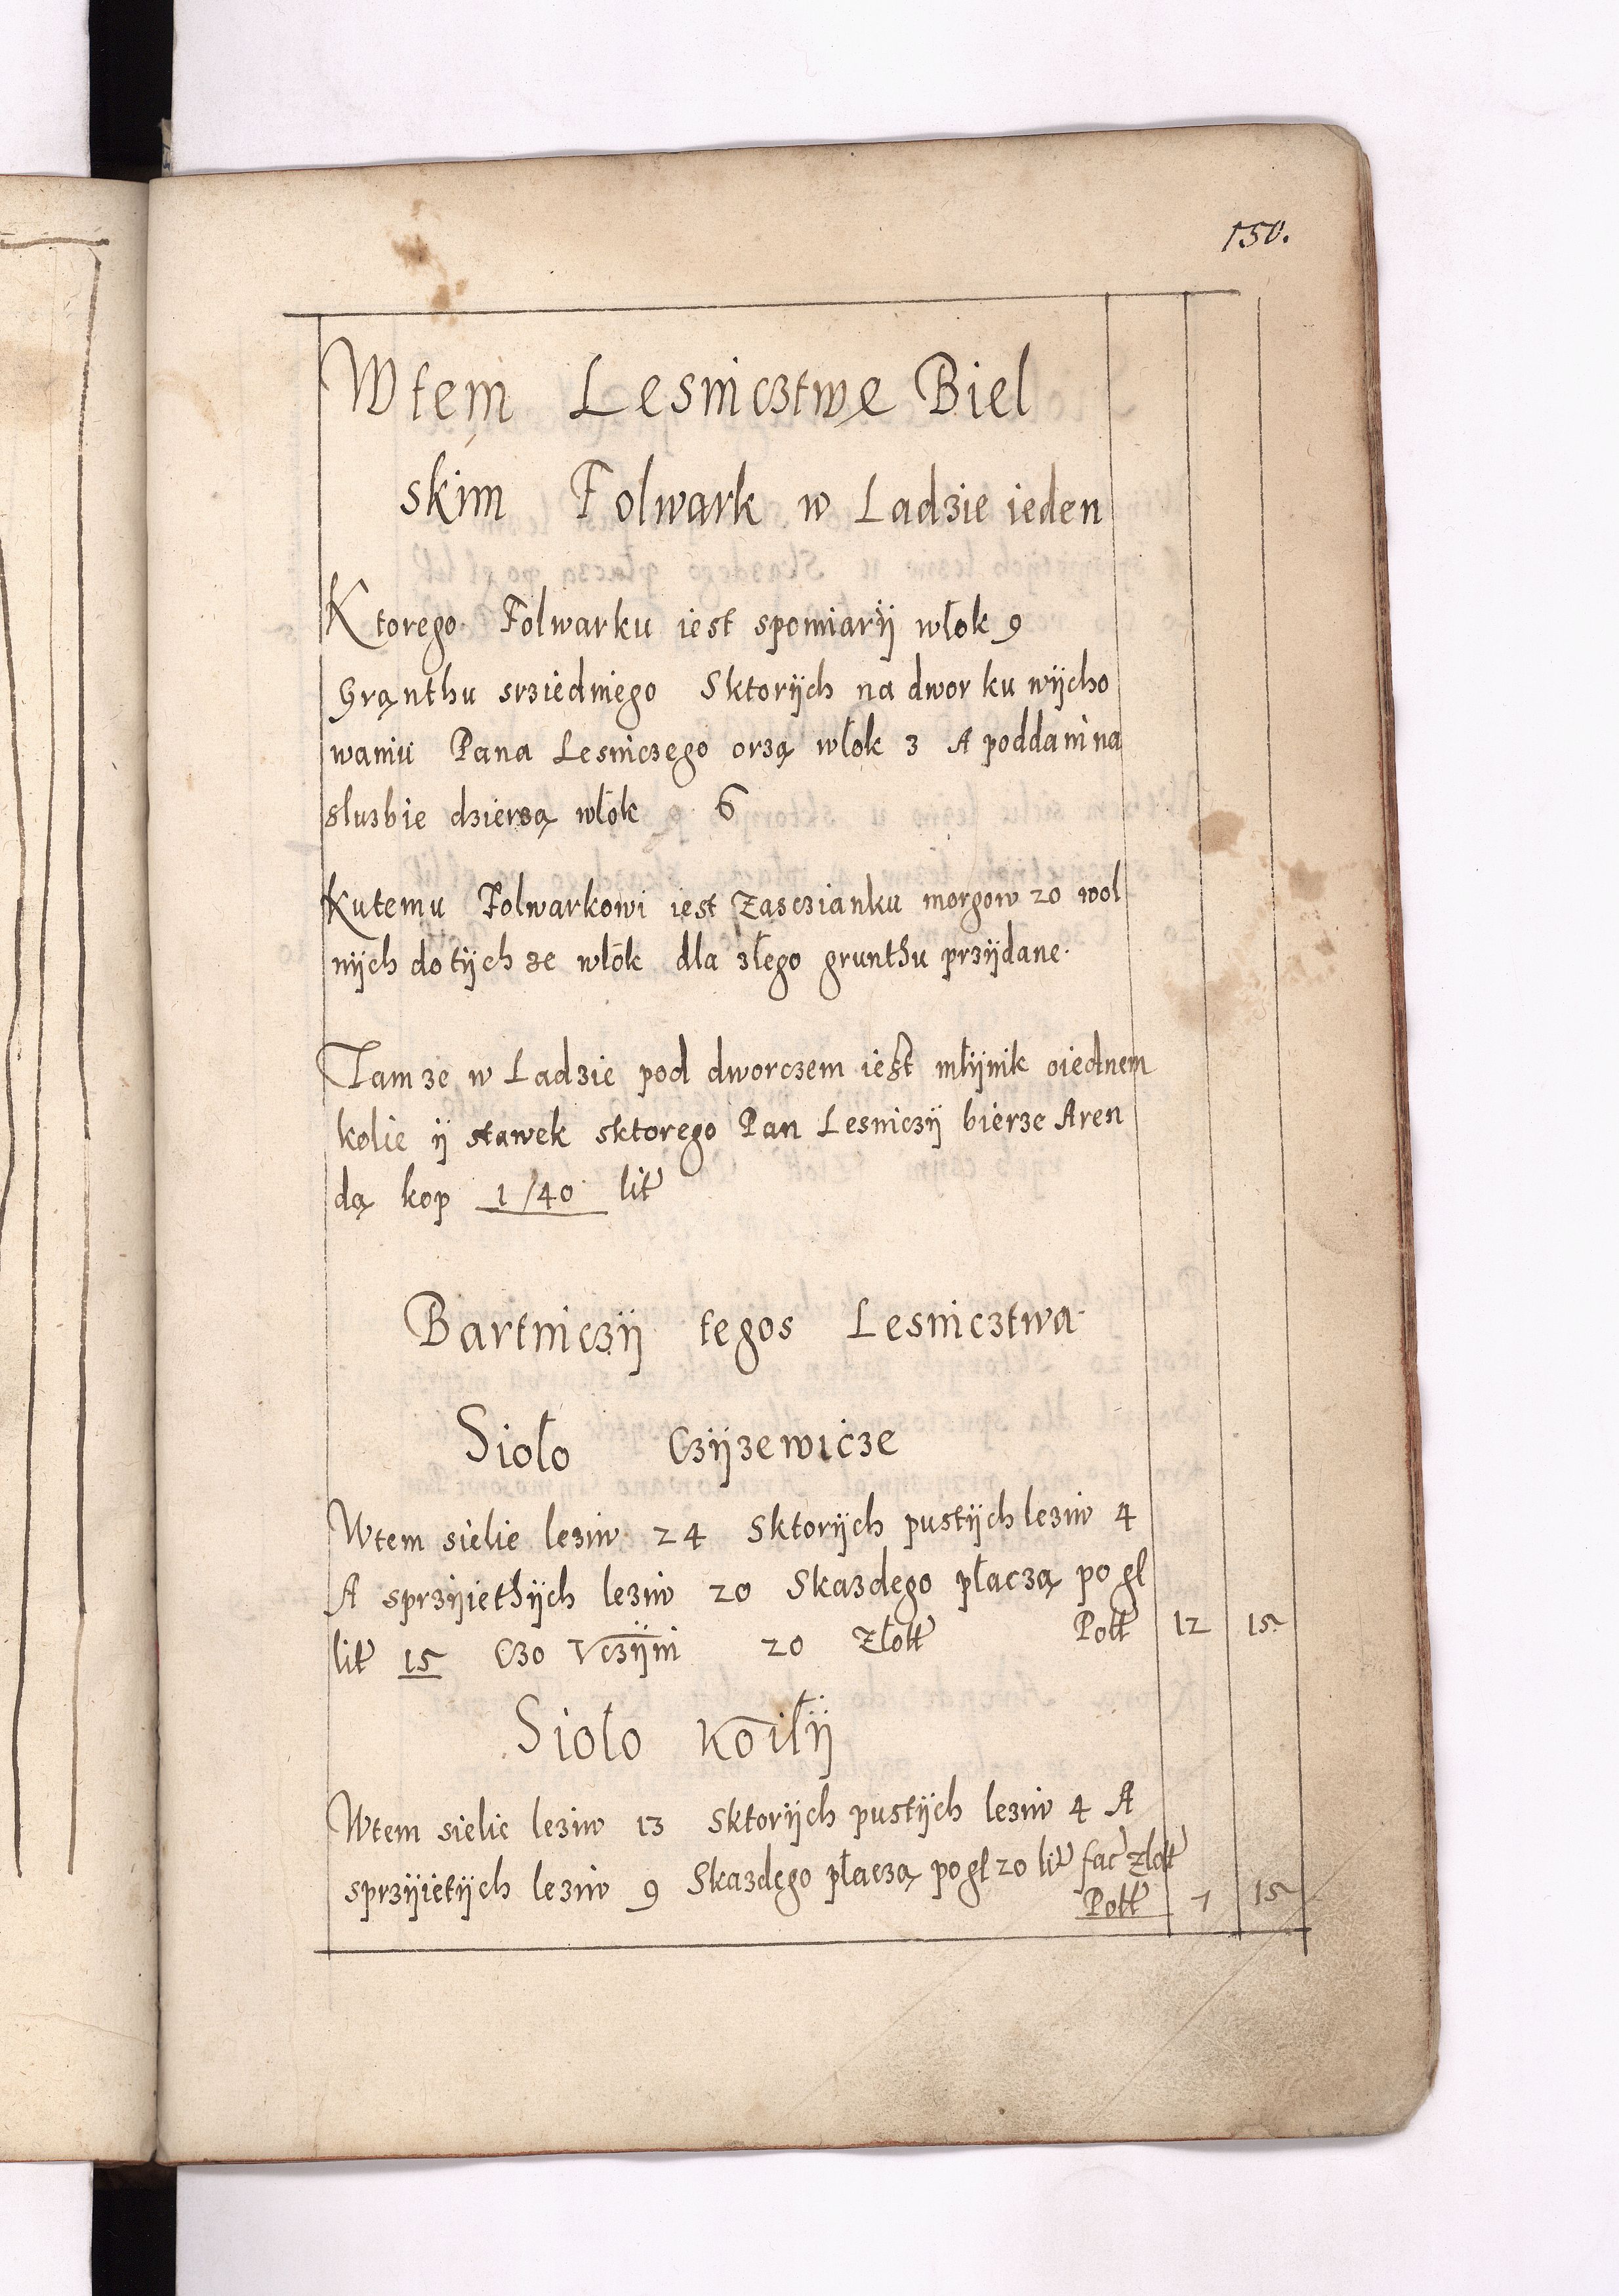 150.
Wtem Lesnicztwe Biel
skim Folwark w Ladzie ieden
Ktorego Folwarku iest spomiarÿ włok 9
Grąnthu srziedniego Sktorÿch na dworku wÿcho
waniu Pana Lesniczego orzą włok 3 A poddani na
sluzbie dzierzą włok 6
Kutemu Folwarkowi iest Zasczianku morgow 20 wol
nÿch do tÿch ze włok dla złego grunthu przÿdane.
Tam ze w Ladzie pod dworczem iest młÿnik oiednem
kolie ÿ stawek sktorego Pan Lesniczÿ bierze Aren
dą kop 1/40 lit
Bartniczÿ tegos Lesnicztwa
Sioło Czÿzewicze
Wtem sielie leziw 24 Sktorÿch pustÿch leziw 4
A sprzÿiethÿch leziw 20 Skazdego płaczą po gl
lit 15 Czo Vczÿni 20 Złott Pott 12 15
Sioło Koiłÿ
Wtem sielie leziw 13 Sktorÿch pustÿch leziw 4 A
sprzÿietÿch leziw 9 Skazdego płaczą po gl 20 lit fac złott
Pott 7 15